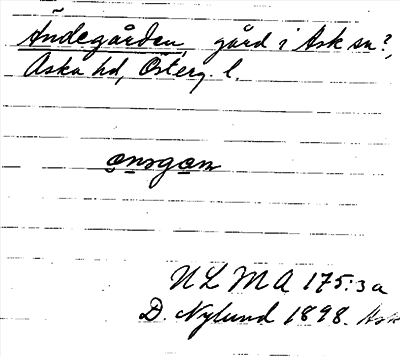 Åndegården, gård i Ask sn?,
Aska hd, Österg. l.
onsgan
ULMA 175:3a
D. Nylund 1898. Ask